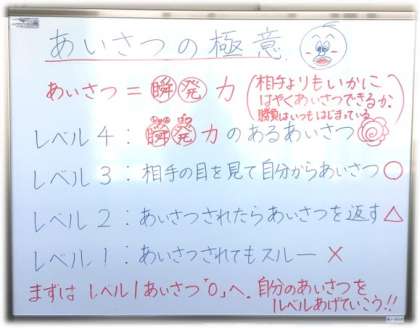 あいさつの極意
あいさつ=瞬発力
(相手よりもいかに
はやくあいさつできるか
勝負はいつもはじまっている)
レベル4:瞬発力のあるあいさつ
レベル3:相手の目を見て自分からあいさつ○
レベル2:あいさつされたらあいさつを返す△
レベル1:あいさつされてもスルー×
まずはレベル1あいさつ「0」へ。自分のあいさつを
1レベルあげていこう!!